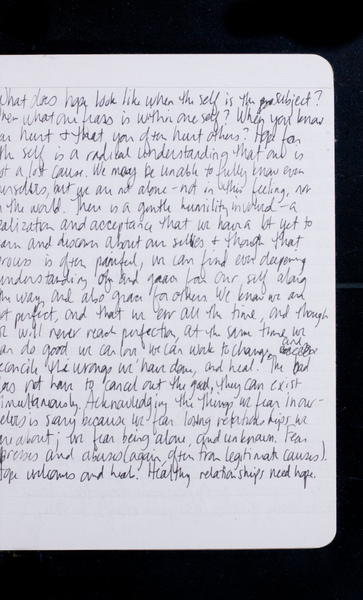 What does hope look like when the self is the subject?
when what one fears is within one self? When you know
an hurt & that you often hurt others? Hope for
the self is a radical understanding that one is
not a lost cause. We may be unable to fully know even
ourselves, but we are not alone - not in this feeling, nor
in the world. There is a gentle humility involved - a
realization and acceptance that we have a lot yet to
learn and discern about our selves & though that
process is often painful, we can find ever deepening
understanding of and grace for our self along
the way, and also grace for others. We know we are
not perfect, and that we err all the time, and though
we will never reach perfection, at the same time we
can do good we can love we can work to change, and
reconcile the wrongs we have done, and heal. The bad
does not have to cancel out the good, they can exist
simultaneously. Acknowledging the things we fear in our-
selves is scary because we fear losing relationships we
care about; we fear being alone, and unknown. Fear
oppresses and abuses (again, often from legitimate causes).
Hope welcomes and heals. Healthy relationships need hope.